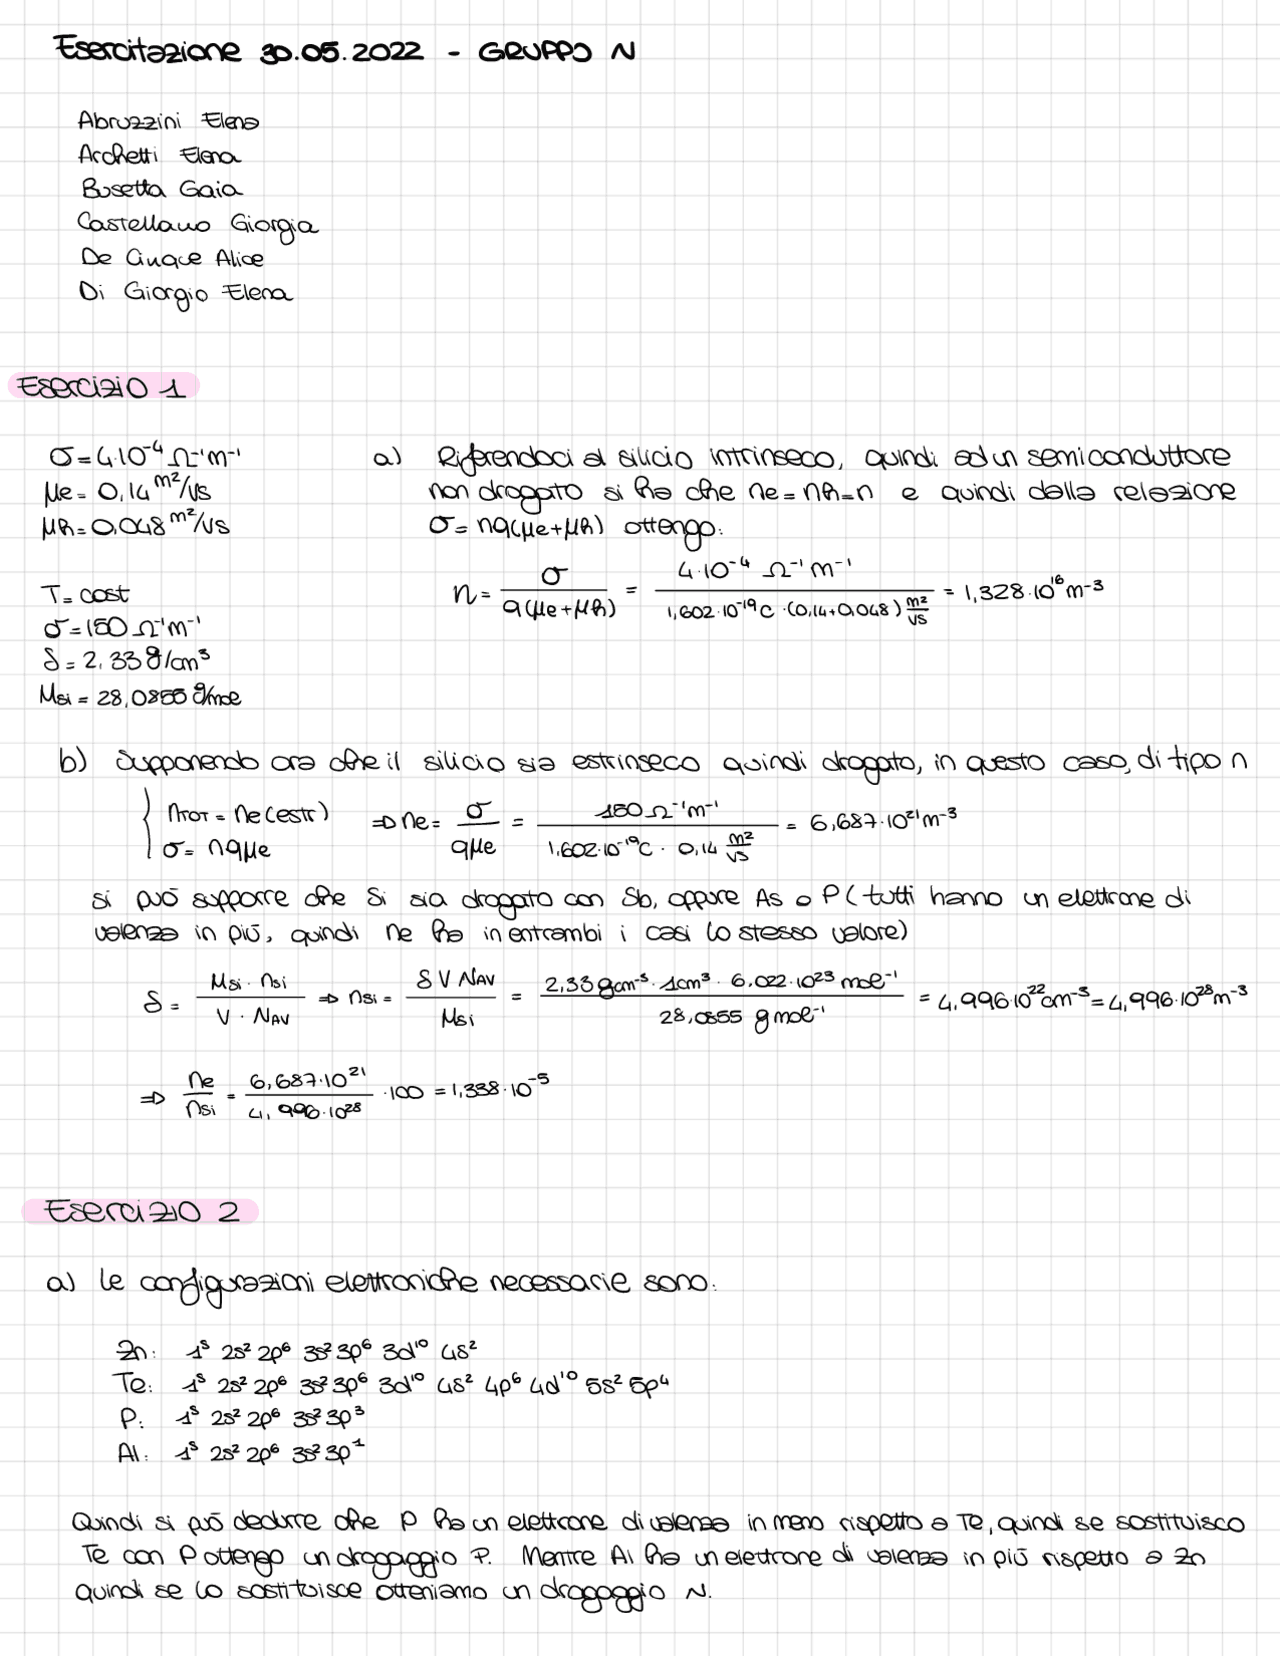 Esercitazione 30.05.2022 - GRUPPO N
Abruzzini Elena
Archetti Elena
Busetta Gaia
Castellano Giorgia
De Cinque Alice
Di Giorgio Elena
Esercizio 1
σ = 4·10⁻⁴ Ω⁻¹m⁻¹
μe = 0,14 m²/Vs
μh = 0,048 m²/Vs
T = cost
σ = 150 Ω⁻¹m⁻¹
δ = 2,33 g/cm³
Msi = 28,0855 g/mol
a) Riferendoci al silicio intrinseco, quindi ad un semiconduttore
non drogato si ha che ne = nh = n e quindi dalla relazione
σ = nq(μe+μh) ottengo:
n = σ / q(μe+μh) = 4·10⁻⁴ Ω⁻¹m⁻¹ / 1,602·10⁻¹⁹C · (0,14+0,048) m²/Vs = 1,328·10¹⁶ m⁻³
b) Supponendo ora che il silicio sia estrinseco quindi drogato, in questo caso, di tipo n
{ nTOT = ne (estr)
σ = nqμe
⇒ ne = σ / qμe = 150 Ω⁻¹m⁻¹ / 1,602·10⁻¹⁹C · 0,14 m²/Vs = 6,687·10²¹ m⁻³
si può supporre che Si sia drogato con Sb, oppure As o P (tutti hanno un elettrone di
valenza in più, quindi ne ha in entrambi i casi lo stesso valore)
δ = Msi · nsi / V · NAV ⇒ nsi = δ V NAV / Msi = 2,33 gcm⁻³ · 1cm³ · 6.022·10²³ mol⁻¹ / 28,0855 g mol⁻¹ = 4,996·10²² cm⁻³ = 4,996·10²⁸ m⁻³
⇒ ne / nsi = 6,687·10²¹ / 4,996·10²⁸ · 100 = 1,338·10⁻⁵
Esercizio 2
a) le configurazioni elettroniche necessarie sono:
Zn: 1ˢ 2s² 2p⁶ 3s² 3p⁶ 3d¹⁰ 4s²
Te: 1ˢ 2s² 2p⁶ 3s² 3p⁶ 3d¹⁰ 4s² 4p⁶ 4d¹⁰ 5s² 5p⁴
P: 1ˢ 2s² 2p⁶ 3s² 3p³
Al: 1ˢ 2s² 2p⁶ 3s² 3p¹
Quindi si può dedurre che P ha un elettrone di valenza in meno rispetto a Te, quindi se sostituisco
Te con P ottengo un drogaggio P. Mentre Al ha un elettrone di valenza in più rispetto a Zn
quindi se lo sostituisce otteniamo un drogaggio N.